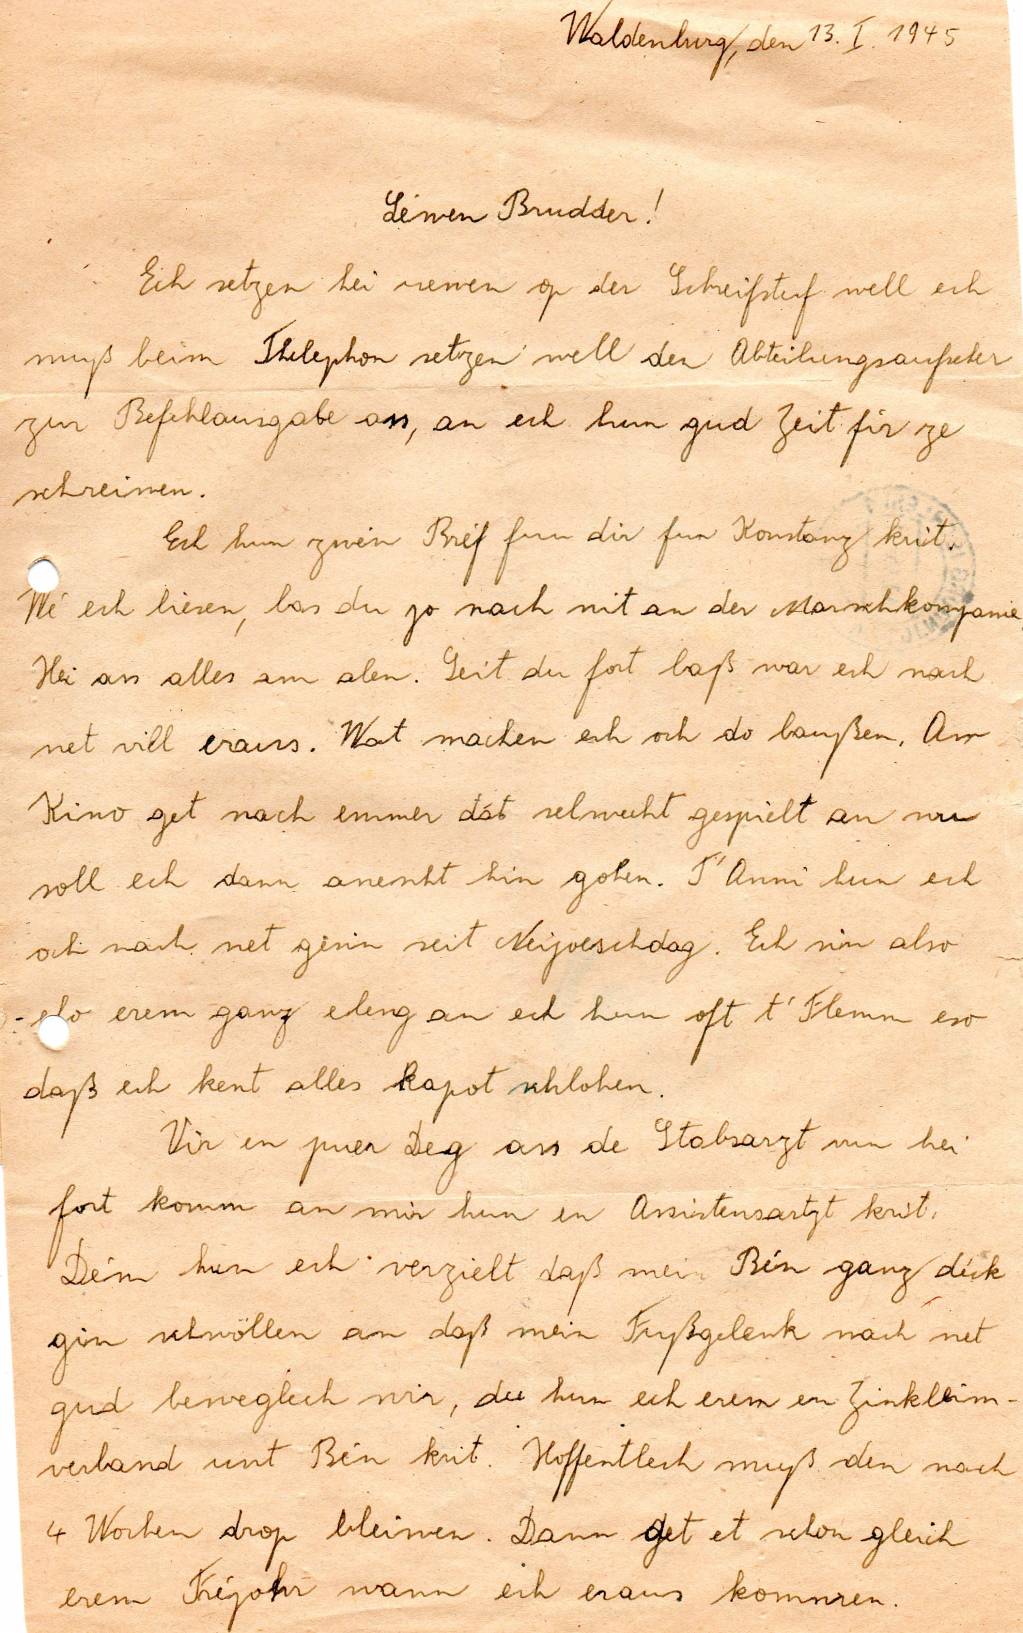 Waldenburg, den 13. I. 1945
Léiwen Brudder!
Ech setzen hei uewen op der Schreifstuf well ech
muß beim Thelephon setzen well den Abteilungsaufseher
zur Befehlausgabe ass, an ech hun gud Zeit fir ze
schreiwen.
Ech hun zwéin Bréif fun dir fun Konstanz krit.
Wé ech liesen, bas du jo nach nit an der Marschkompanie.
Hei ass alles am alen. Seit du fort baß war ech nach
net vill eraus. Wat machen ech och do baußen. Am
Kino get nach emmer dat selwecht gespielt an wu
soll ech dann anescht hin gohen. T'Anni hun ech
och nach net gesin seit Neijoeschdag. Ech sin also
elo erem ganz eleng an ech hun oft t'Flemm eso
daß ech kent alles kapot schlohen.
Vir en puer Deg ass de Stabsarzt vun hei
fort komm an mir hun en Assistensartzt krit.
Deim hun ech verzielt daß mein Bén ganz déck
gin schwöllen an daß mein Fußgelenk nach net
gud beweglech wir, du hun ech erem en Zinkleim-
verband unt Bén krit. Hoffentlech muß den nach
4 Wochen drop bleiwen. Dann get et schon gleich
erem Fréjohr wann ech eraus kommen.